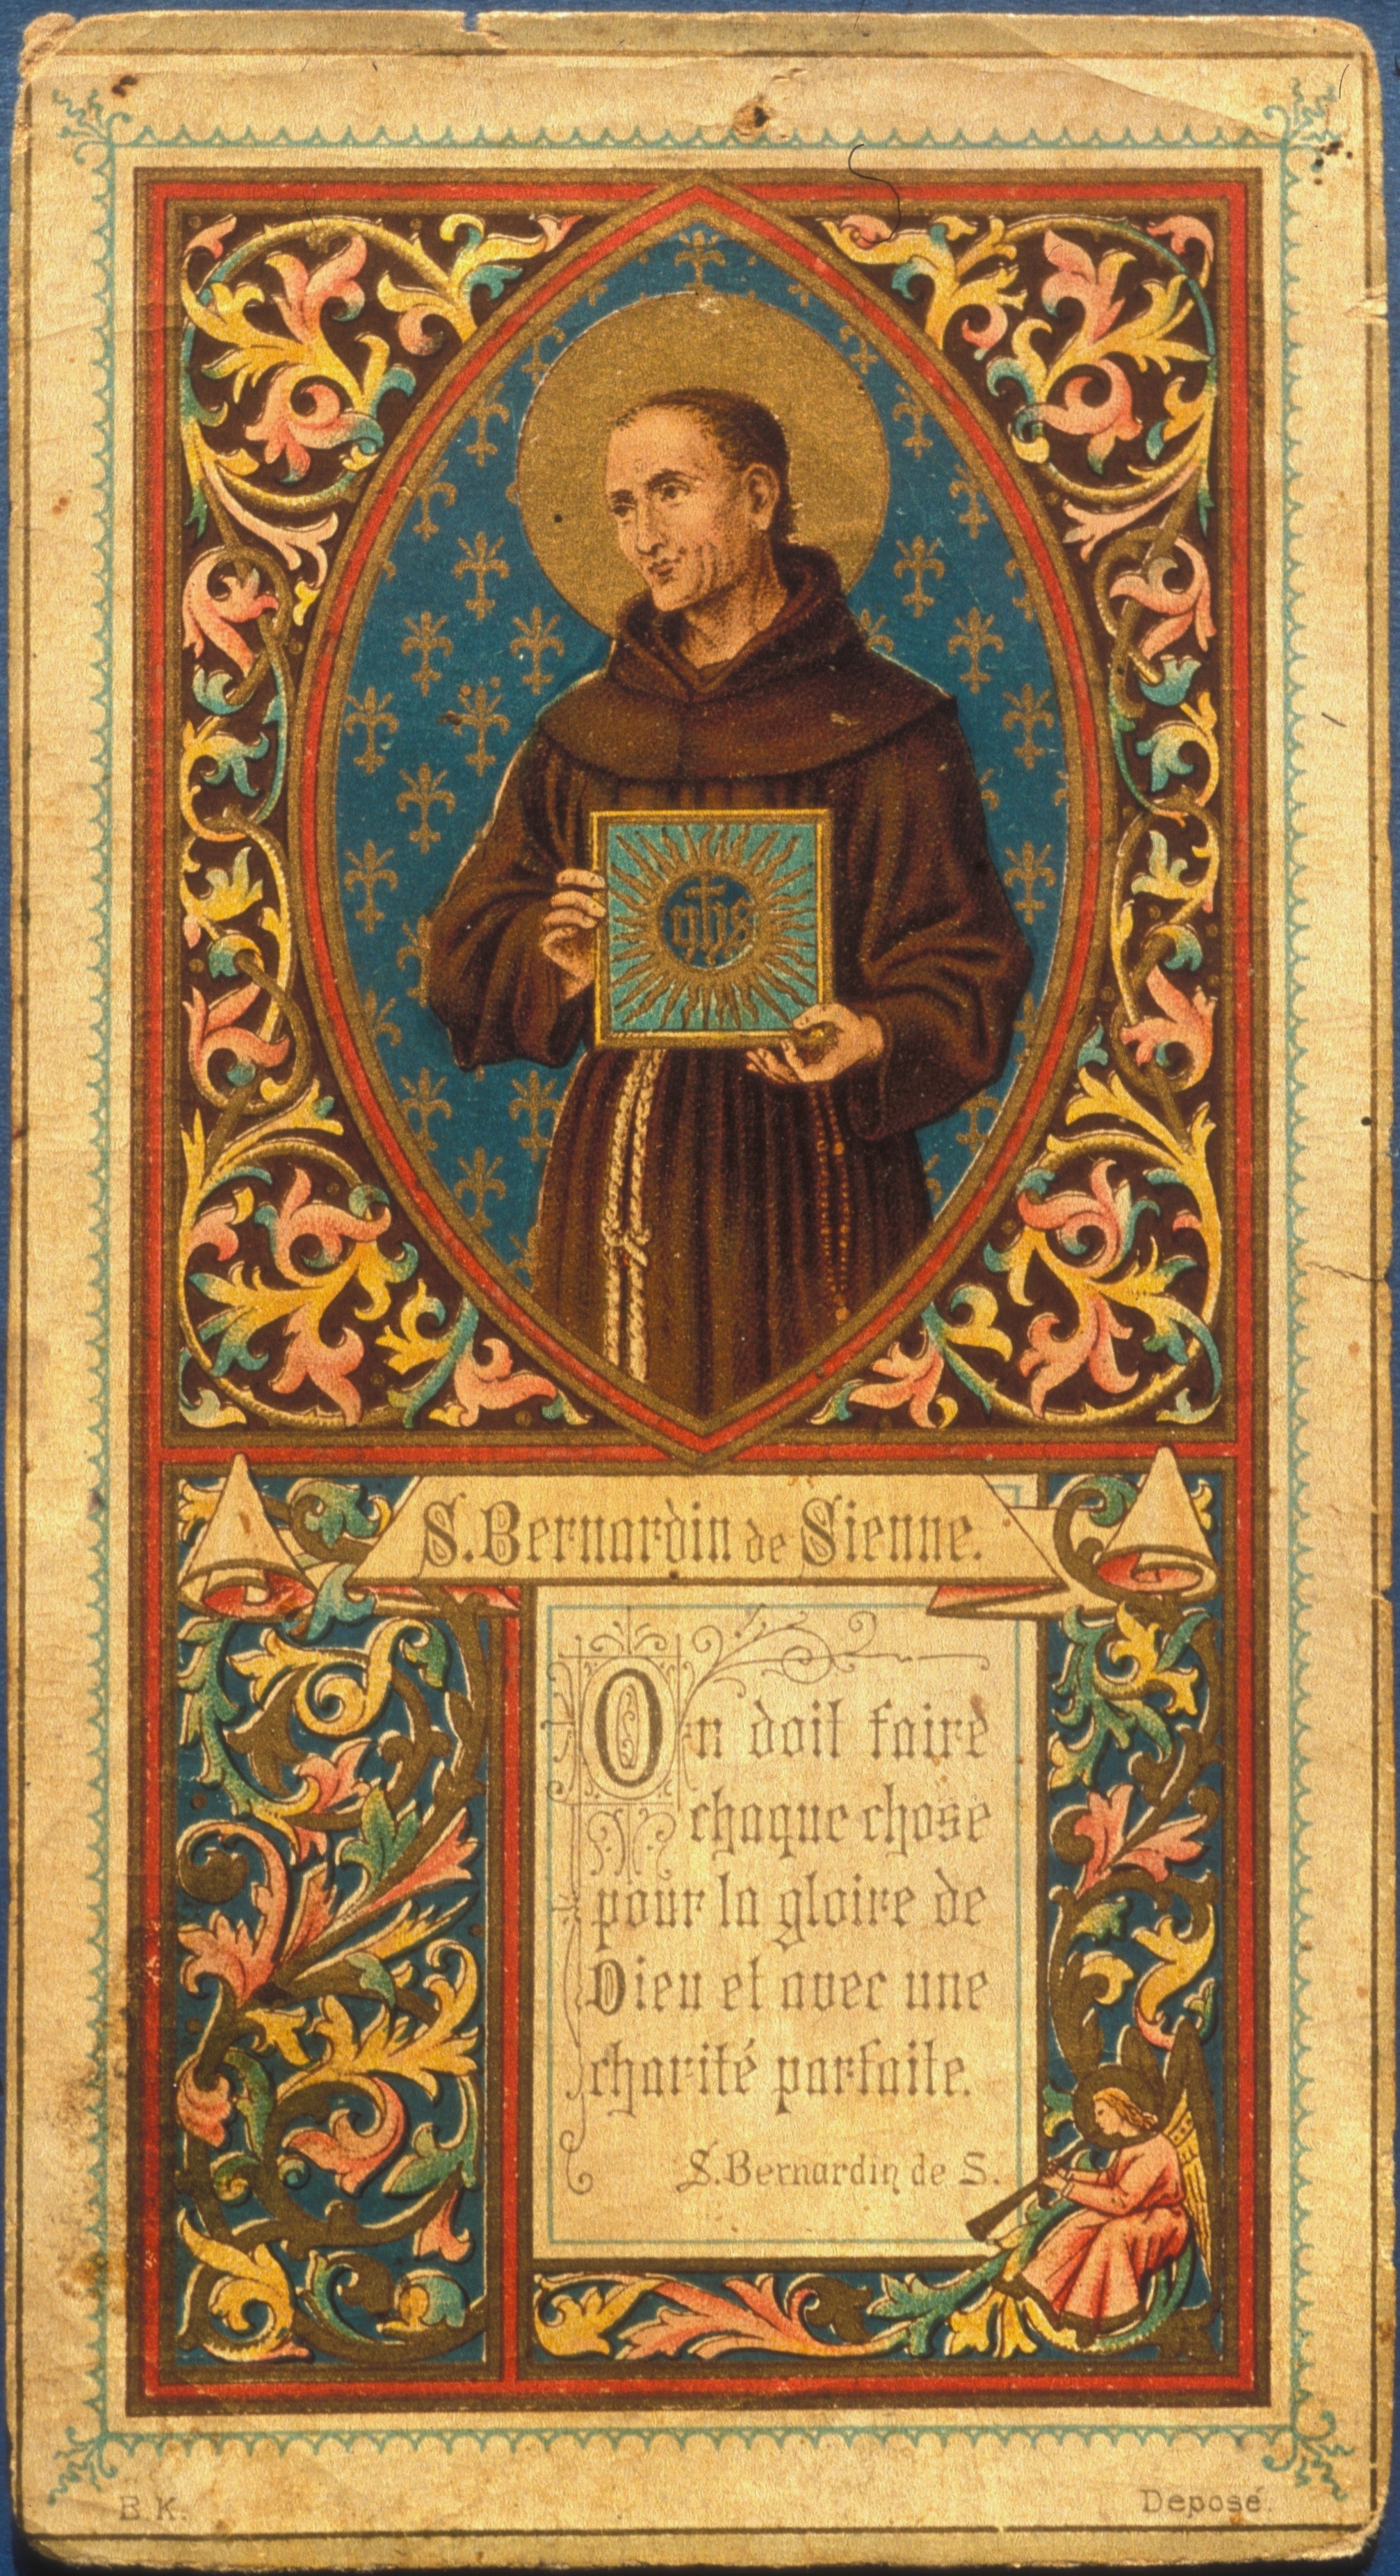 yhs
S. Bernardin de Sienne.
On doit faire
chaque chose
pour la gloire de
Dieu et avec une
charité parfaite.
S. Bernardin de S.
B.K. Déposé.